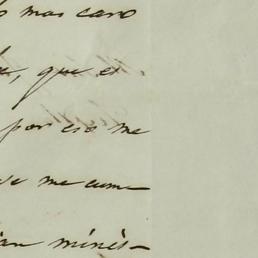 mas caro
que el
por eso me
me cum-
minis-